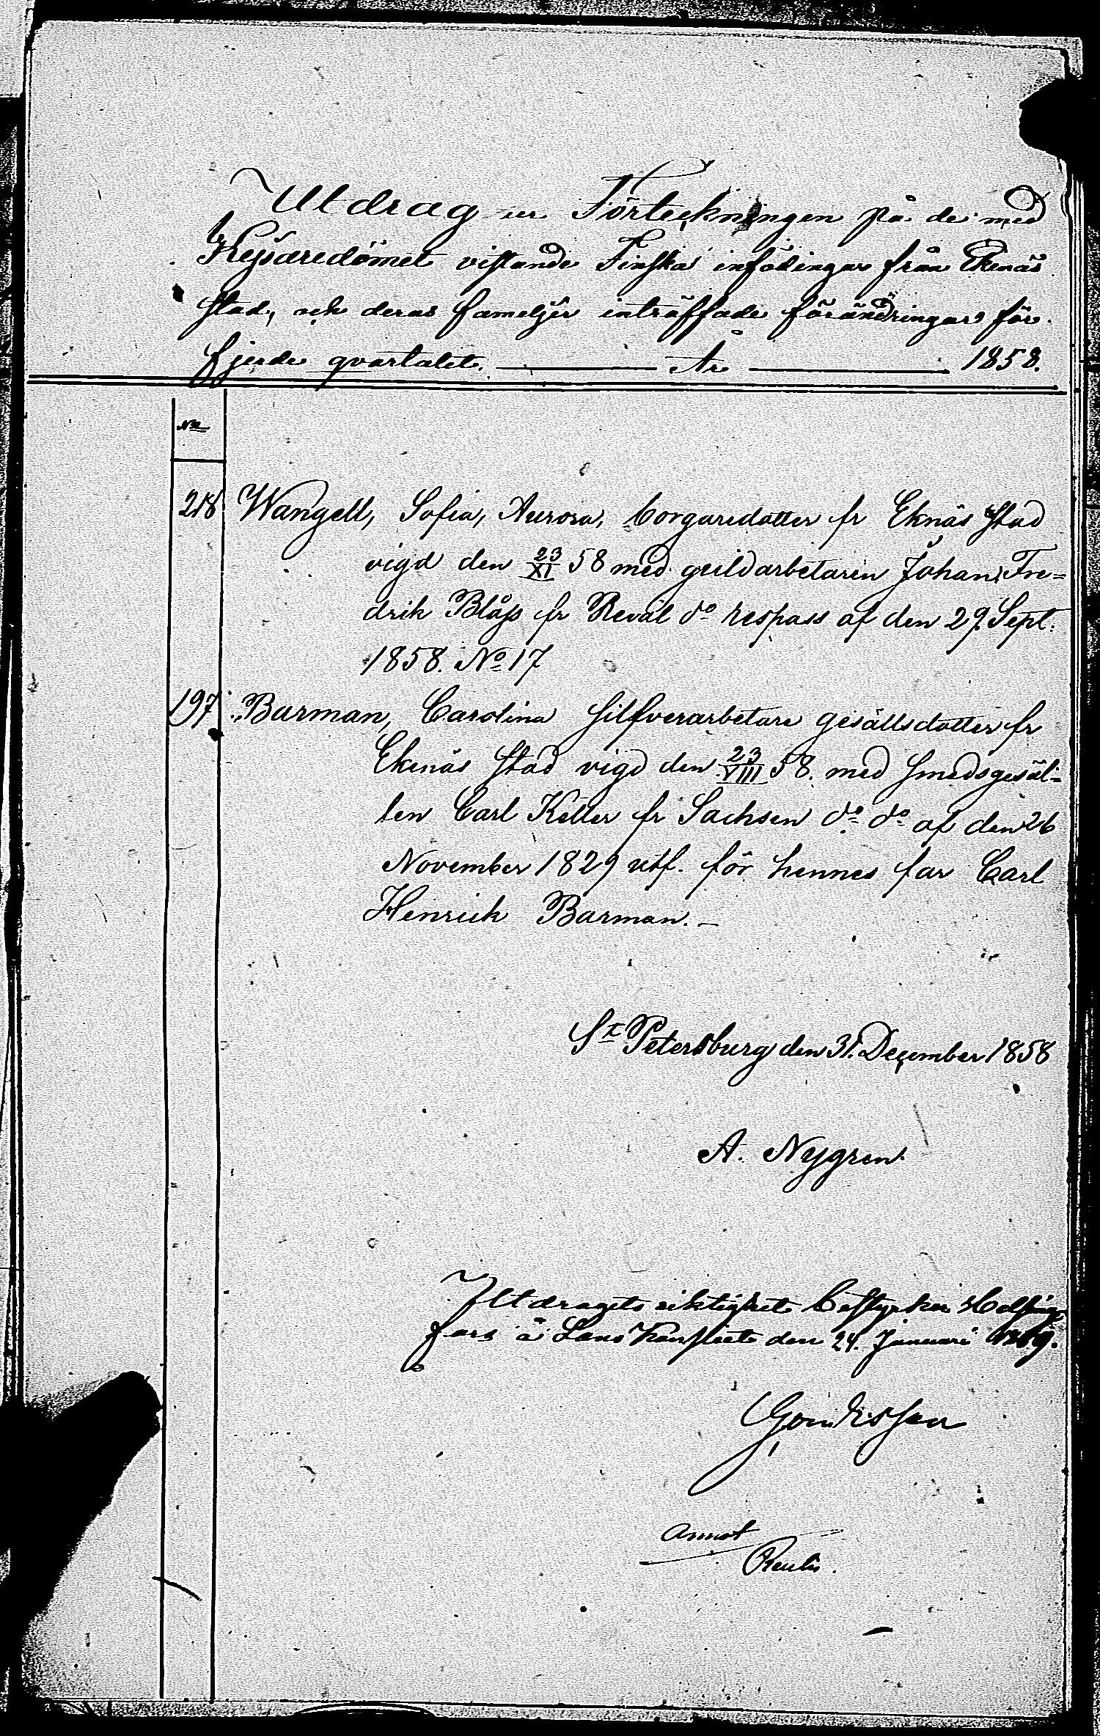 Utdrag ur Förteckningen på de med
Kejsaredömet vistande Finska infödingar från Ekenäs
stad, och deras familjer inträffade förändringar för
fjerde qvartalet. År 1858.
No
218 Wangell, Sofia, Aurora, borgaredotter fr Eknäs Stad
vigd den 23/XI 58 med guldarbetaren Johan Fre=
drik Blåss fr Reval do respass af den 29. Sept.
1858. No 17
197 Barman, Carolina silfverarbetare gesällsdotter fr
Ekenäs stad vigd den 23/VIII 58. med smedsgesäl=
len Carl Keller fr Sachsen do do af den 26
November 1829 utf. för hennes far Carl
Henrick Barman.
St Petersburg den 31. December 1858
A. Nygren
Utdragets riktighet bestyrker Helsing
fors å Lands Kansliet den 24. Januari
Annot